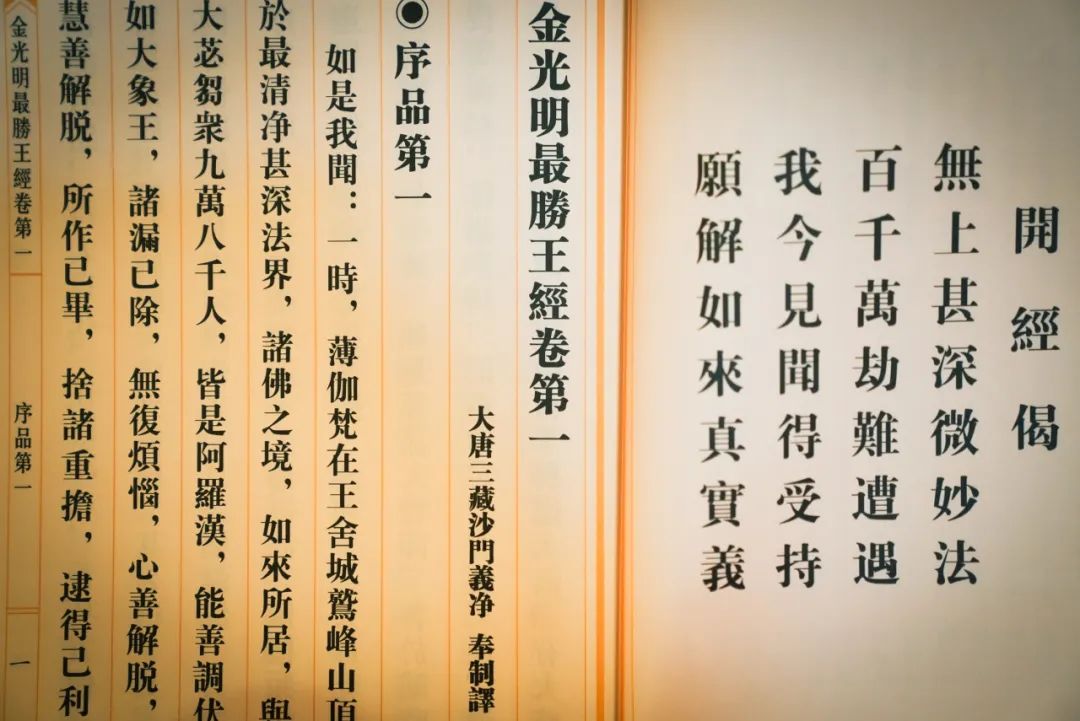 開經偈
無上甚深微妙法
百千萬劫難遭遇
我今見聞得受持
願解如來真實義
金光明最勝王經卷第一
大唐三藏沙門義净 奉制譯
◉序品第一
如是我聞：一時，薄伽梵在王舍城鷲峰山頂
於最清净甚深法界，諸佛之境，如來所居，與
大苾芻衆九萬八千人，皆是阿羅漢，能善調伏
如大象王，諸漏已除，無復煩惱，心善解脱，
慧善解脱，所作已畢，捨諸重擔，逮得己利
金光明最勝王經卷第一
序品第一
一